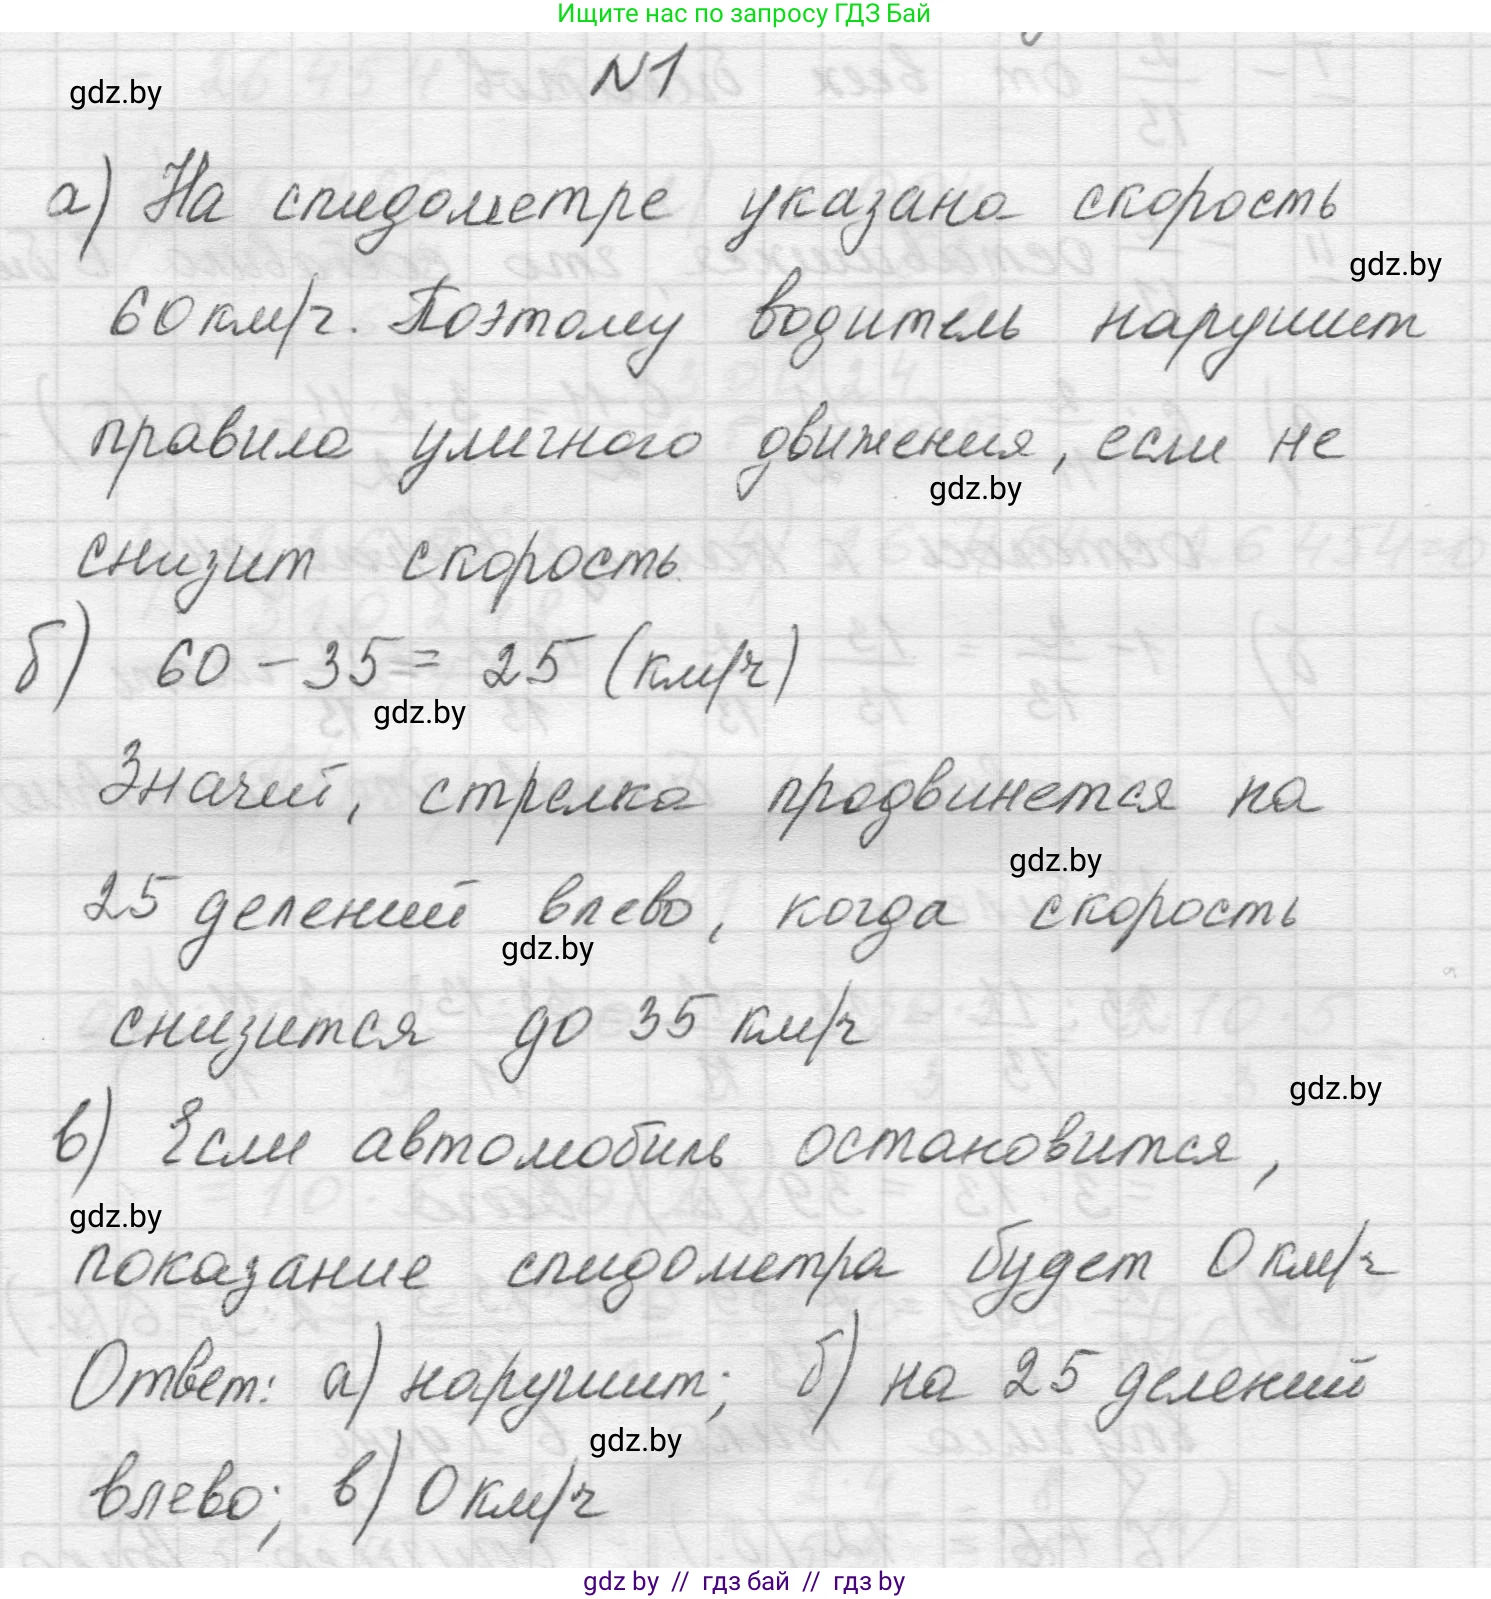 Ищите нас по запросу ГДЗ Бай
N1
gdz.by
а) На спидометре указана скорость
gdz.by
60 км/ч. Поэтому водитель нарушит
правила уличного движения, если не
gdz.by
снизит скорость.
б) 60 - 35 = 25 (км/ч)
gdz.by
Значит, стрелка продвинется на
gdz.by
25 делений влево, когда скорость
gdz.by
снизится до 35 км/ч
gdz.by
в) Если автомобиль остановится,
gdz.by
показание спидометра будет 0 км/ч
Ответ: а) нарушит; б) на 25 делений
gdz.by
влево; в) 0 км/ч
gdz by // гдз бай // гдз by